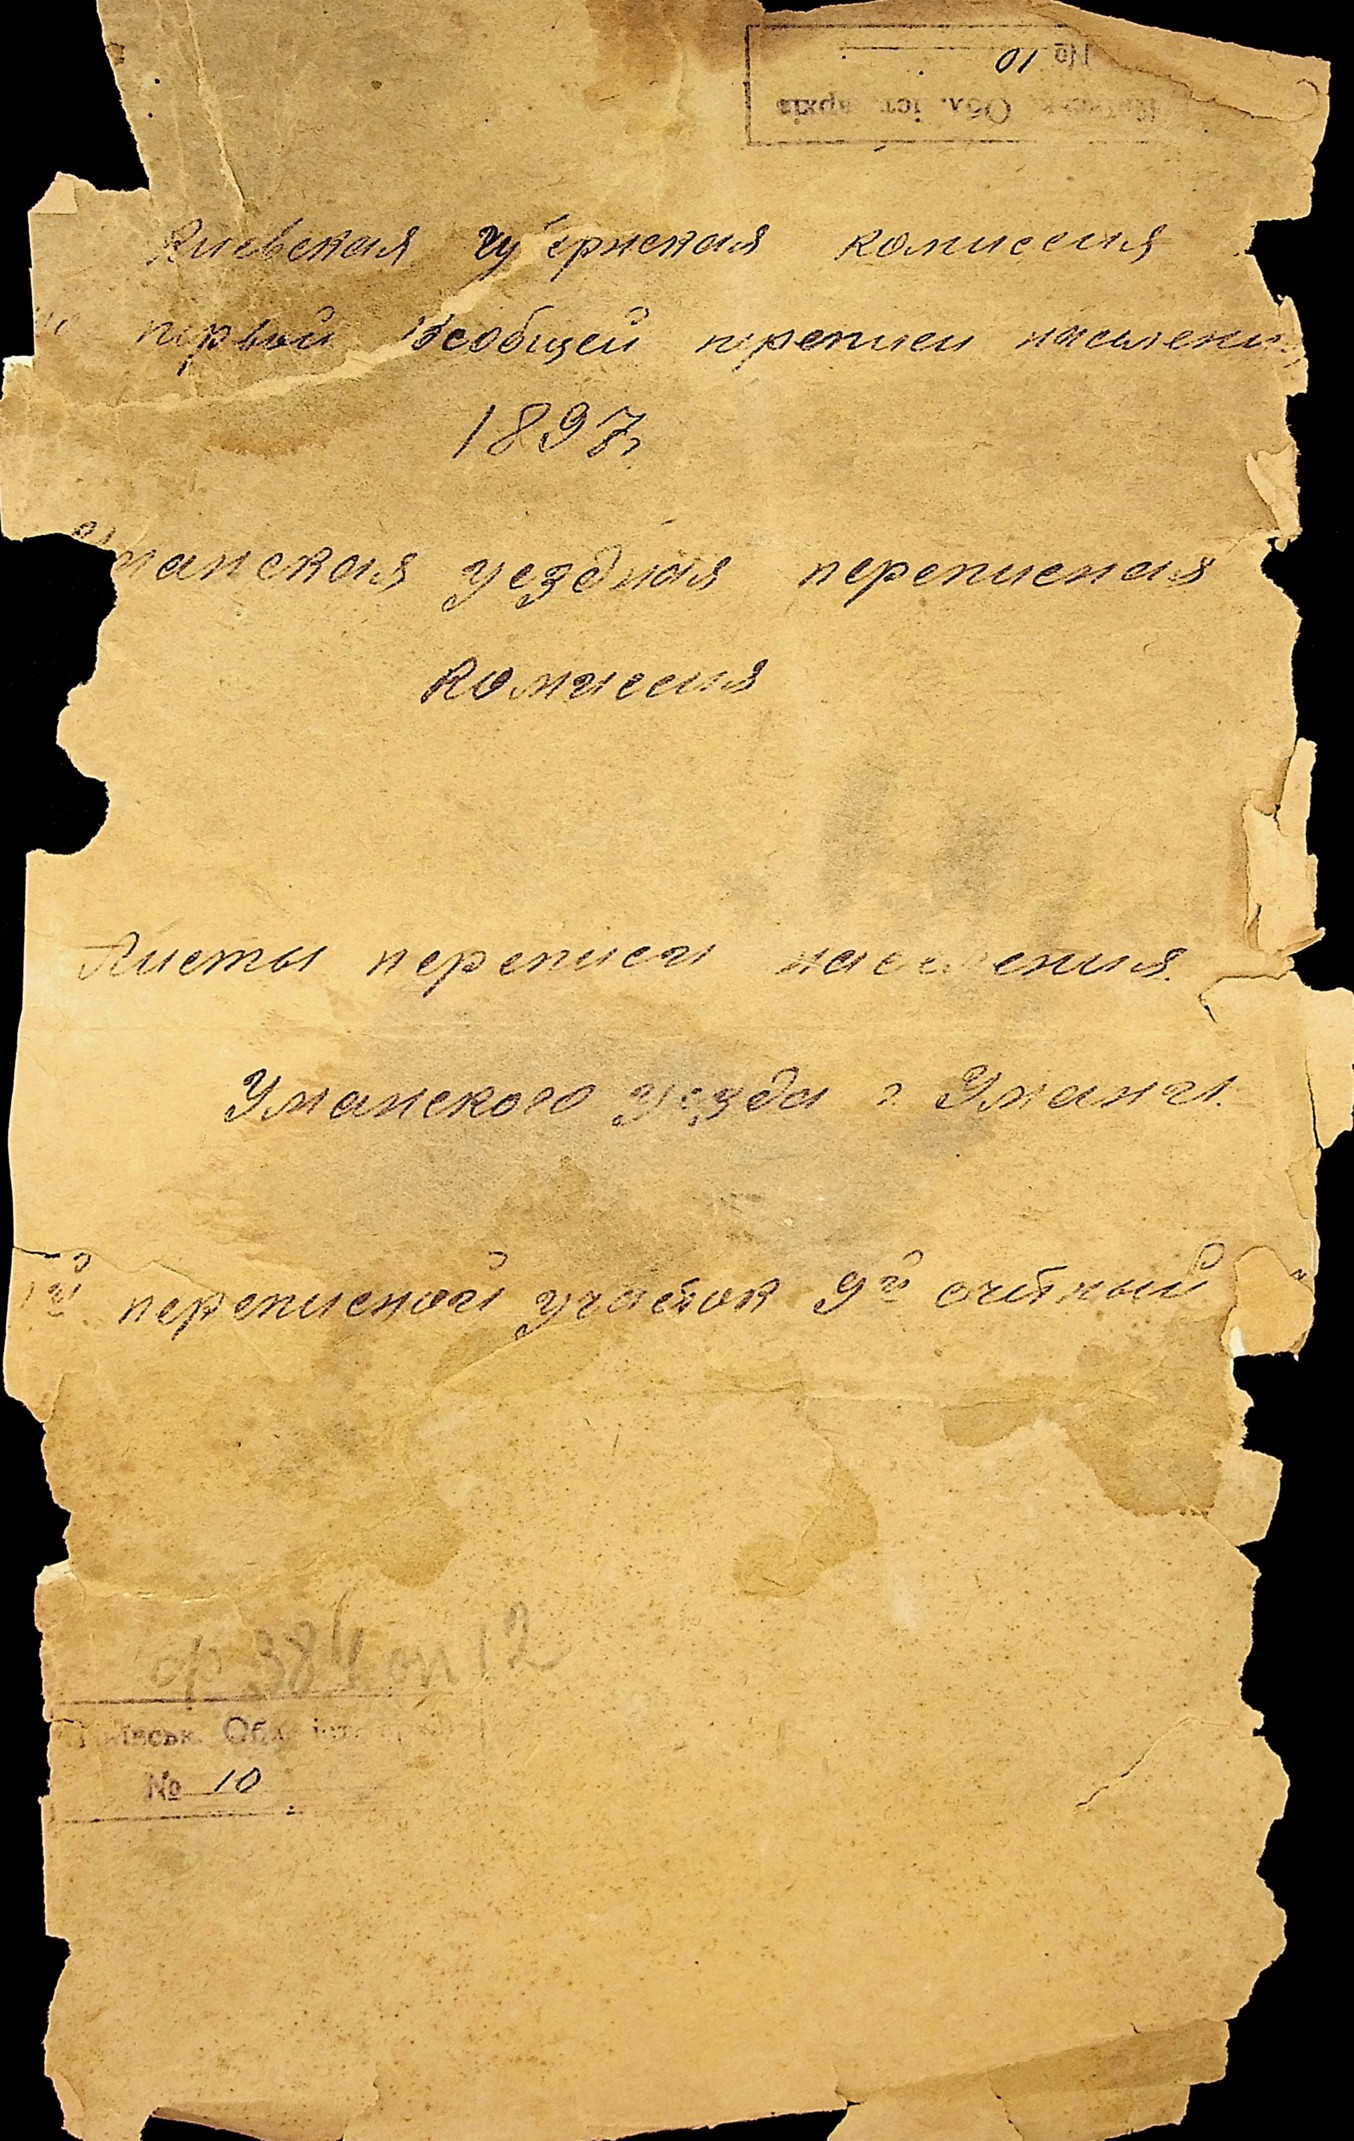 № 10
Київськ. Обл. іст. архів
Киевская губернская комиссия
по первой Всеобщей переписи населени
1897г.
Уманская уездная переписная
комиссия
Листы переписи населения
Уманского уезда г. Умани.
1й переписной участок 9й счётный
ф 384 оп 12
Київськ. Обл. іст. архів
№ 10